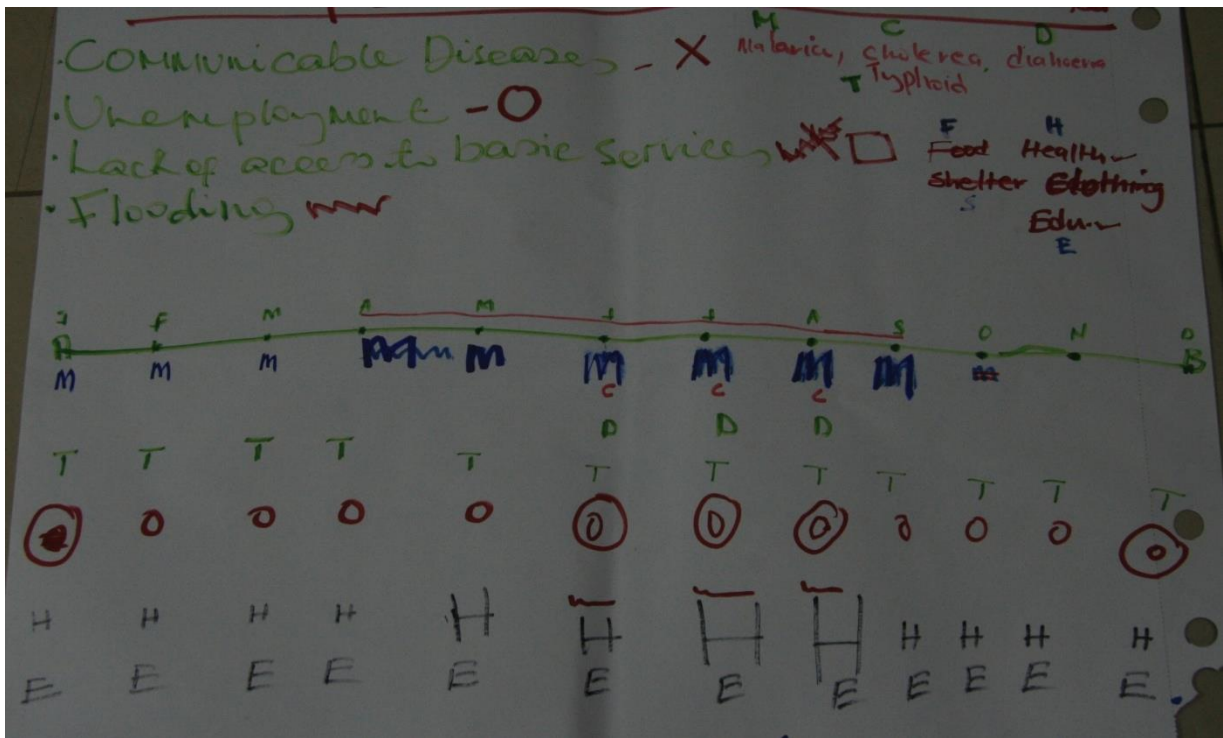 M C D
· Communicable Diseases - X Malaria, Cholerea, diahoerra
T Typhoid
· Unemployment - O
F H
· Lack of access to basic services Food Health
Shelter Clothing
S
· Flooding Edu.
E
J F M A M J J A S O N D
A B
M M M M M M M M M
C C C
D D D
T T T T T T T T T T T T
O O O O O O O O O O O O
H H H H H H H H H H H H
E E E E E E E E E E E E